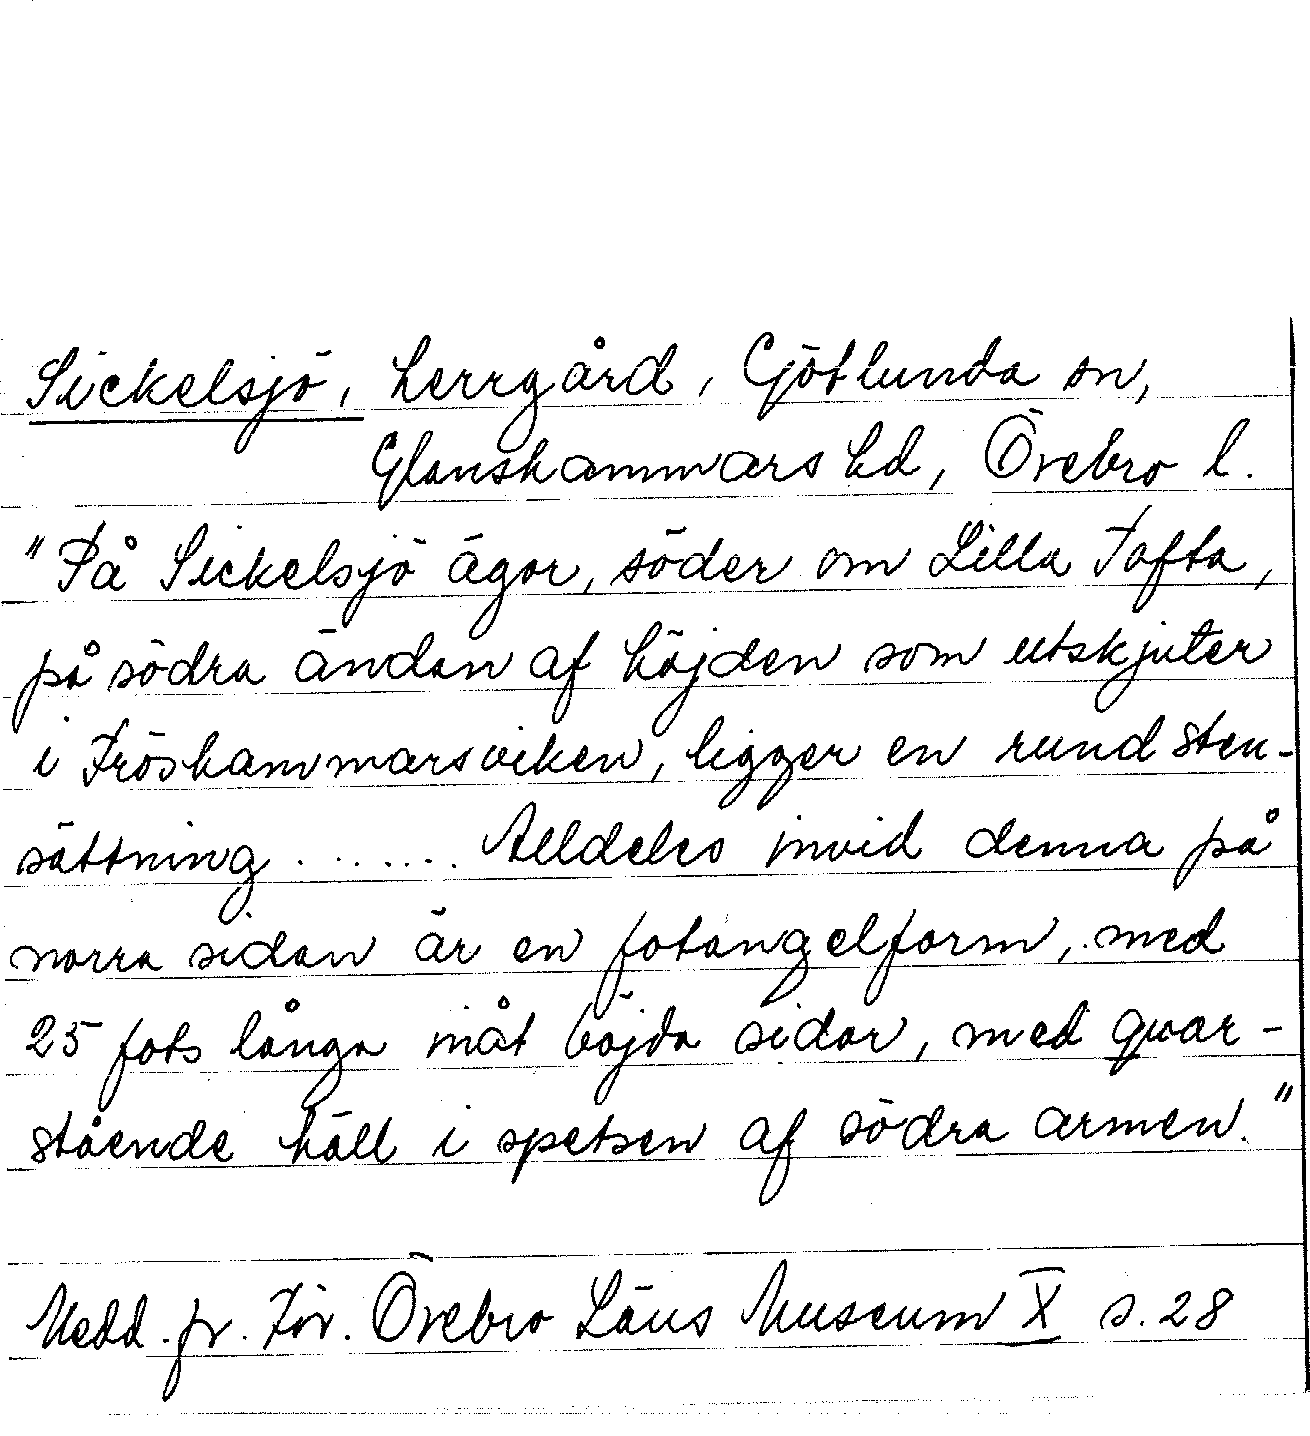 Sickelsjö, herrgård, Götlunda sn,
Glanshammars hd, Örebro l.
"På Sickelsjö ägor, söder om Lilla Tofta,
på södra ändan af höjden som utskjuter
i Fröshammarsviken, ligger en rund sten-
sättning ....... Alldeles invid denna på
norra sidan är en fotangelform, med
25 fots långa inåt böjda sidor, med qvar-
stående häll i spetsen af södra armen."
Medd. fr. För. Örebro Läns Museum X s. 28